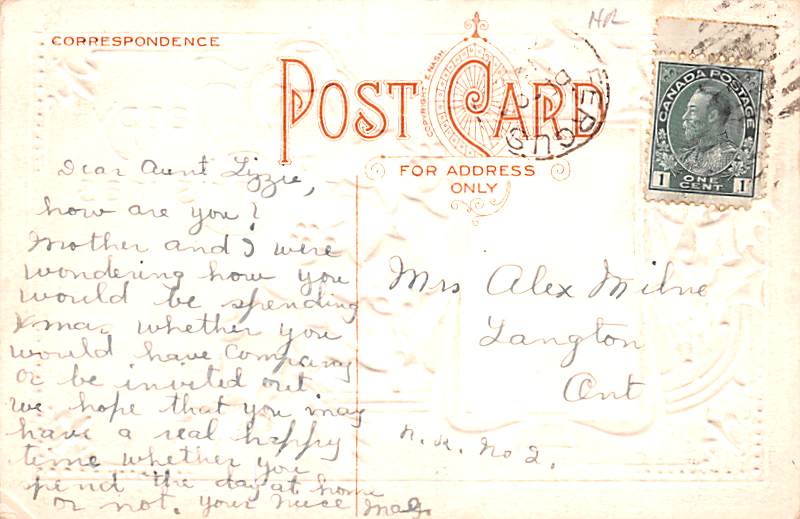 HR
CORRESPONDENCE
COPYRIGHT E. NASH
POST CARD
FOR ADDRESS
ONLY
FERGUS
CANADA POSTAGE
1 ONE CENT 1
Dear Aunt Lizzie,
how are you?
Mother and I were
wondering how you
would be spending
Xmas whether you
would have company
or be invited out
we hope that you may
have a real happy
time whether you
spend the day at home
or not. your niece
Mrs Alex Milne
Langton
Ont
No 2.